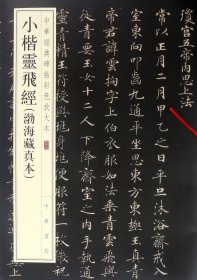 瓊宮五帝內思上法
常以正月二月甲乙之日平旦沐浴齋戒入
室東向叩齒九通平坐思東方東極玉真青
帝君諱雲拘字上伯衣服如法乘青雲飛輿
從青要玉女十二人下降齋室之內手執通
靈青精玉符授與兆身兆便服符一枚微祝
中華經典碑帖彩色放大本
小楷靈飛經(渤海藏真本)
中華書局